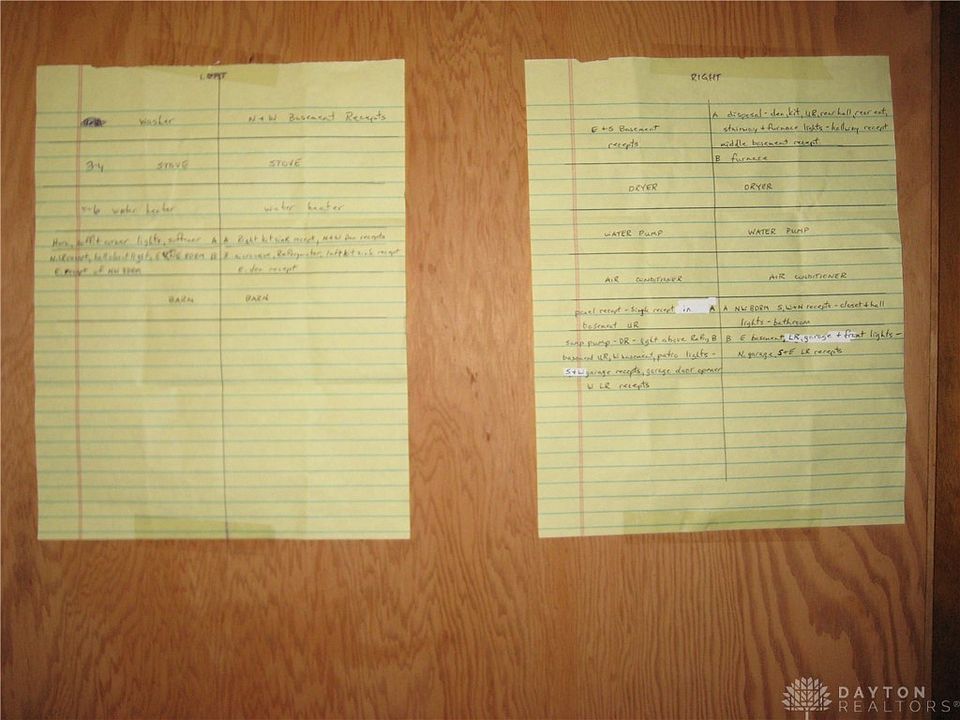 LEFT
Washer N+W Basement Recepts
3-4 STOVE STOVE
5-6 water heater water heater
soffit corner lights, softener A A Right kit sink recept, N+W Den recepts
B B microwave, Refrigerator, left kit sink recept
E. recept of NW BDRM E. den recept
BARN BARN
RIGHT
A disposal - den, kit, UR, rear hall, rear ent,
E+S Basement stairway + furnace lights - hallway recept
recepts middle basement recept
B furnace
DRYER DRYER
WATER PUMP WATER PUMP
AIR CONDITIONER AIR CONDITIONER
panel recept - single recept in A A NW BDRM S, W+N recepts - closet + hall
basement UR lights - bathroom
sump pump - DR - light above Refrig B B E basement, LR, garage + front lights -
basement UR, W basement, patio lights - N. garage S+E LR recepts
S+W garage recepts, garage door opener
W LR recepts
DAYTON
REALTORS®